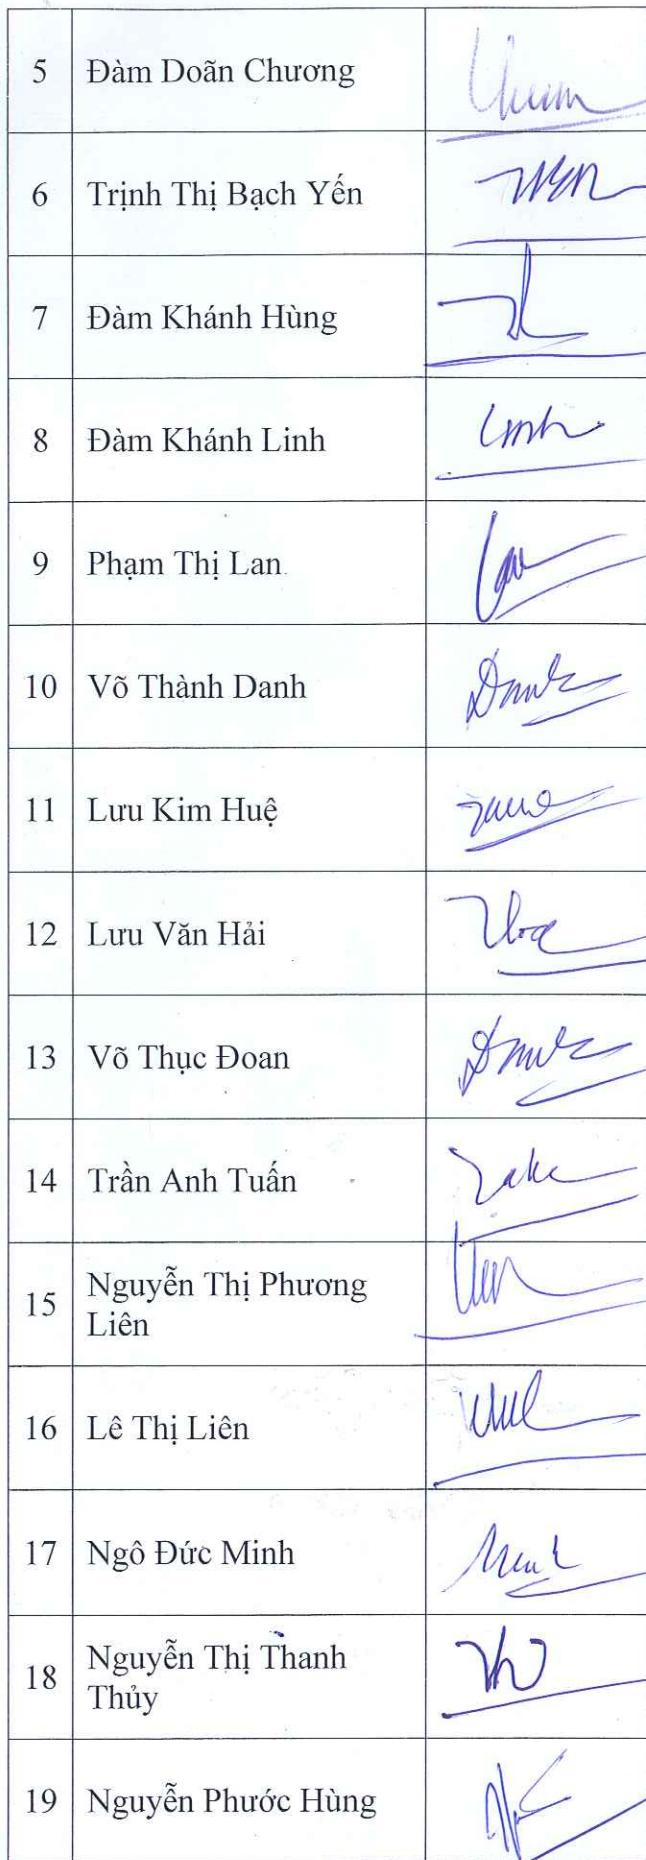 5 Đàm Doãn Chương
6 Trịnh Thị Bạch Yến
7 Đàm Khánh Hùng
8 Đàm Khánh Linh
9 Phạm Thị Lan
10 Võ Thành Danh
11 Lưu Kim Huệ
12 Lưu Văn Hải
13 Võ Thục Đoan
14 Trần Anh Tuấn
15 Nguyễn Thị Phương
Liên
16 Lê Thị Liên
17 Ngô Đức Minh
18 Nguyễn Thị Thanh
Thủy
19 Nguyễn Phước Hùng